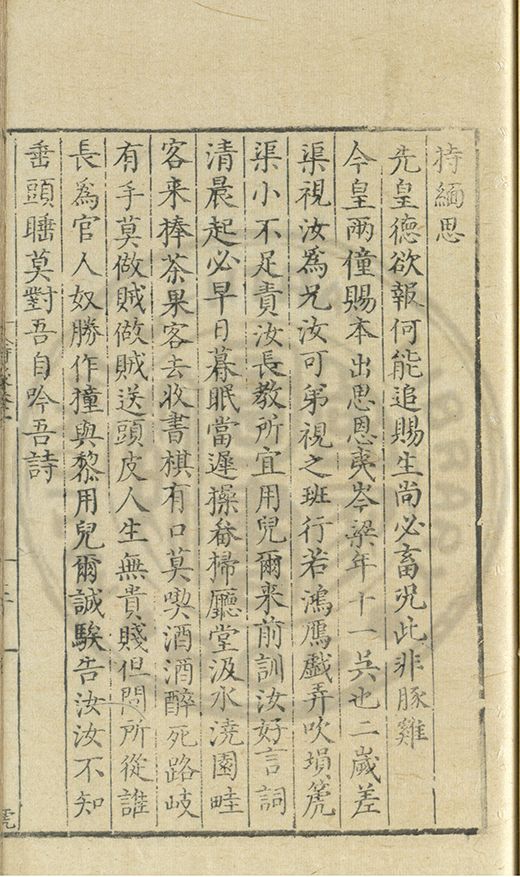 持緬思
先皇德欲報何能追賜生尚必畜況此非豚雞
今皇兩僮賜本出思恩夷岑梁年十一吳也二歲差
渠視汝為兄汝可弟視之班行若鴻鴈戲弄吹塤箎
渠小不足責汝長教所宜用兒爾來前訓汝好言詞
清晨起必早日暮眠當遲操畚掃廳堂汲水澆園畦
客来捧茶果客去收書棋有口莫喫酒酒醉死路歧
有手莫做賊做賊送頭皮人生無貴賤但問所從誰
長為官人奴勝作獞與黎用兒爾誠騃告汝汝不知
垂頭睡莫對吾自吟吾詩